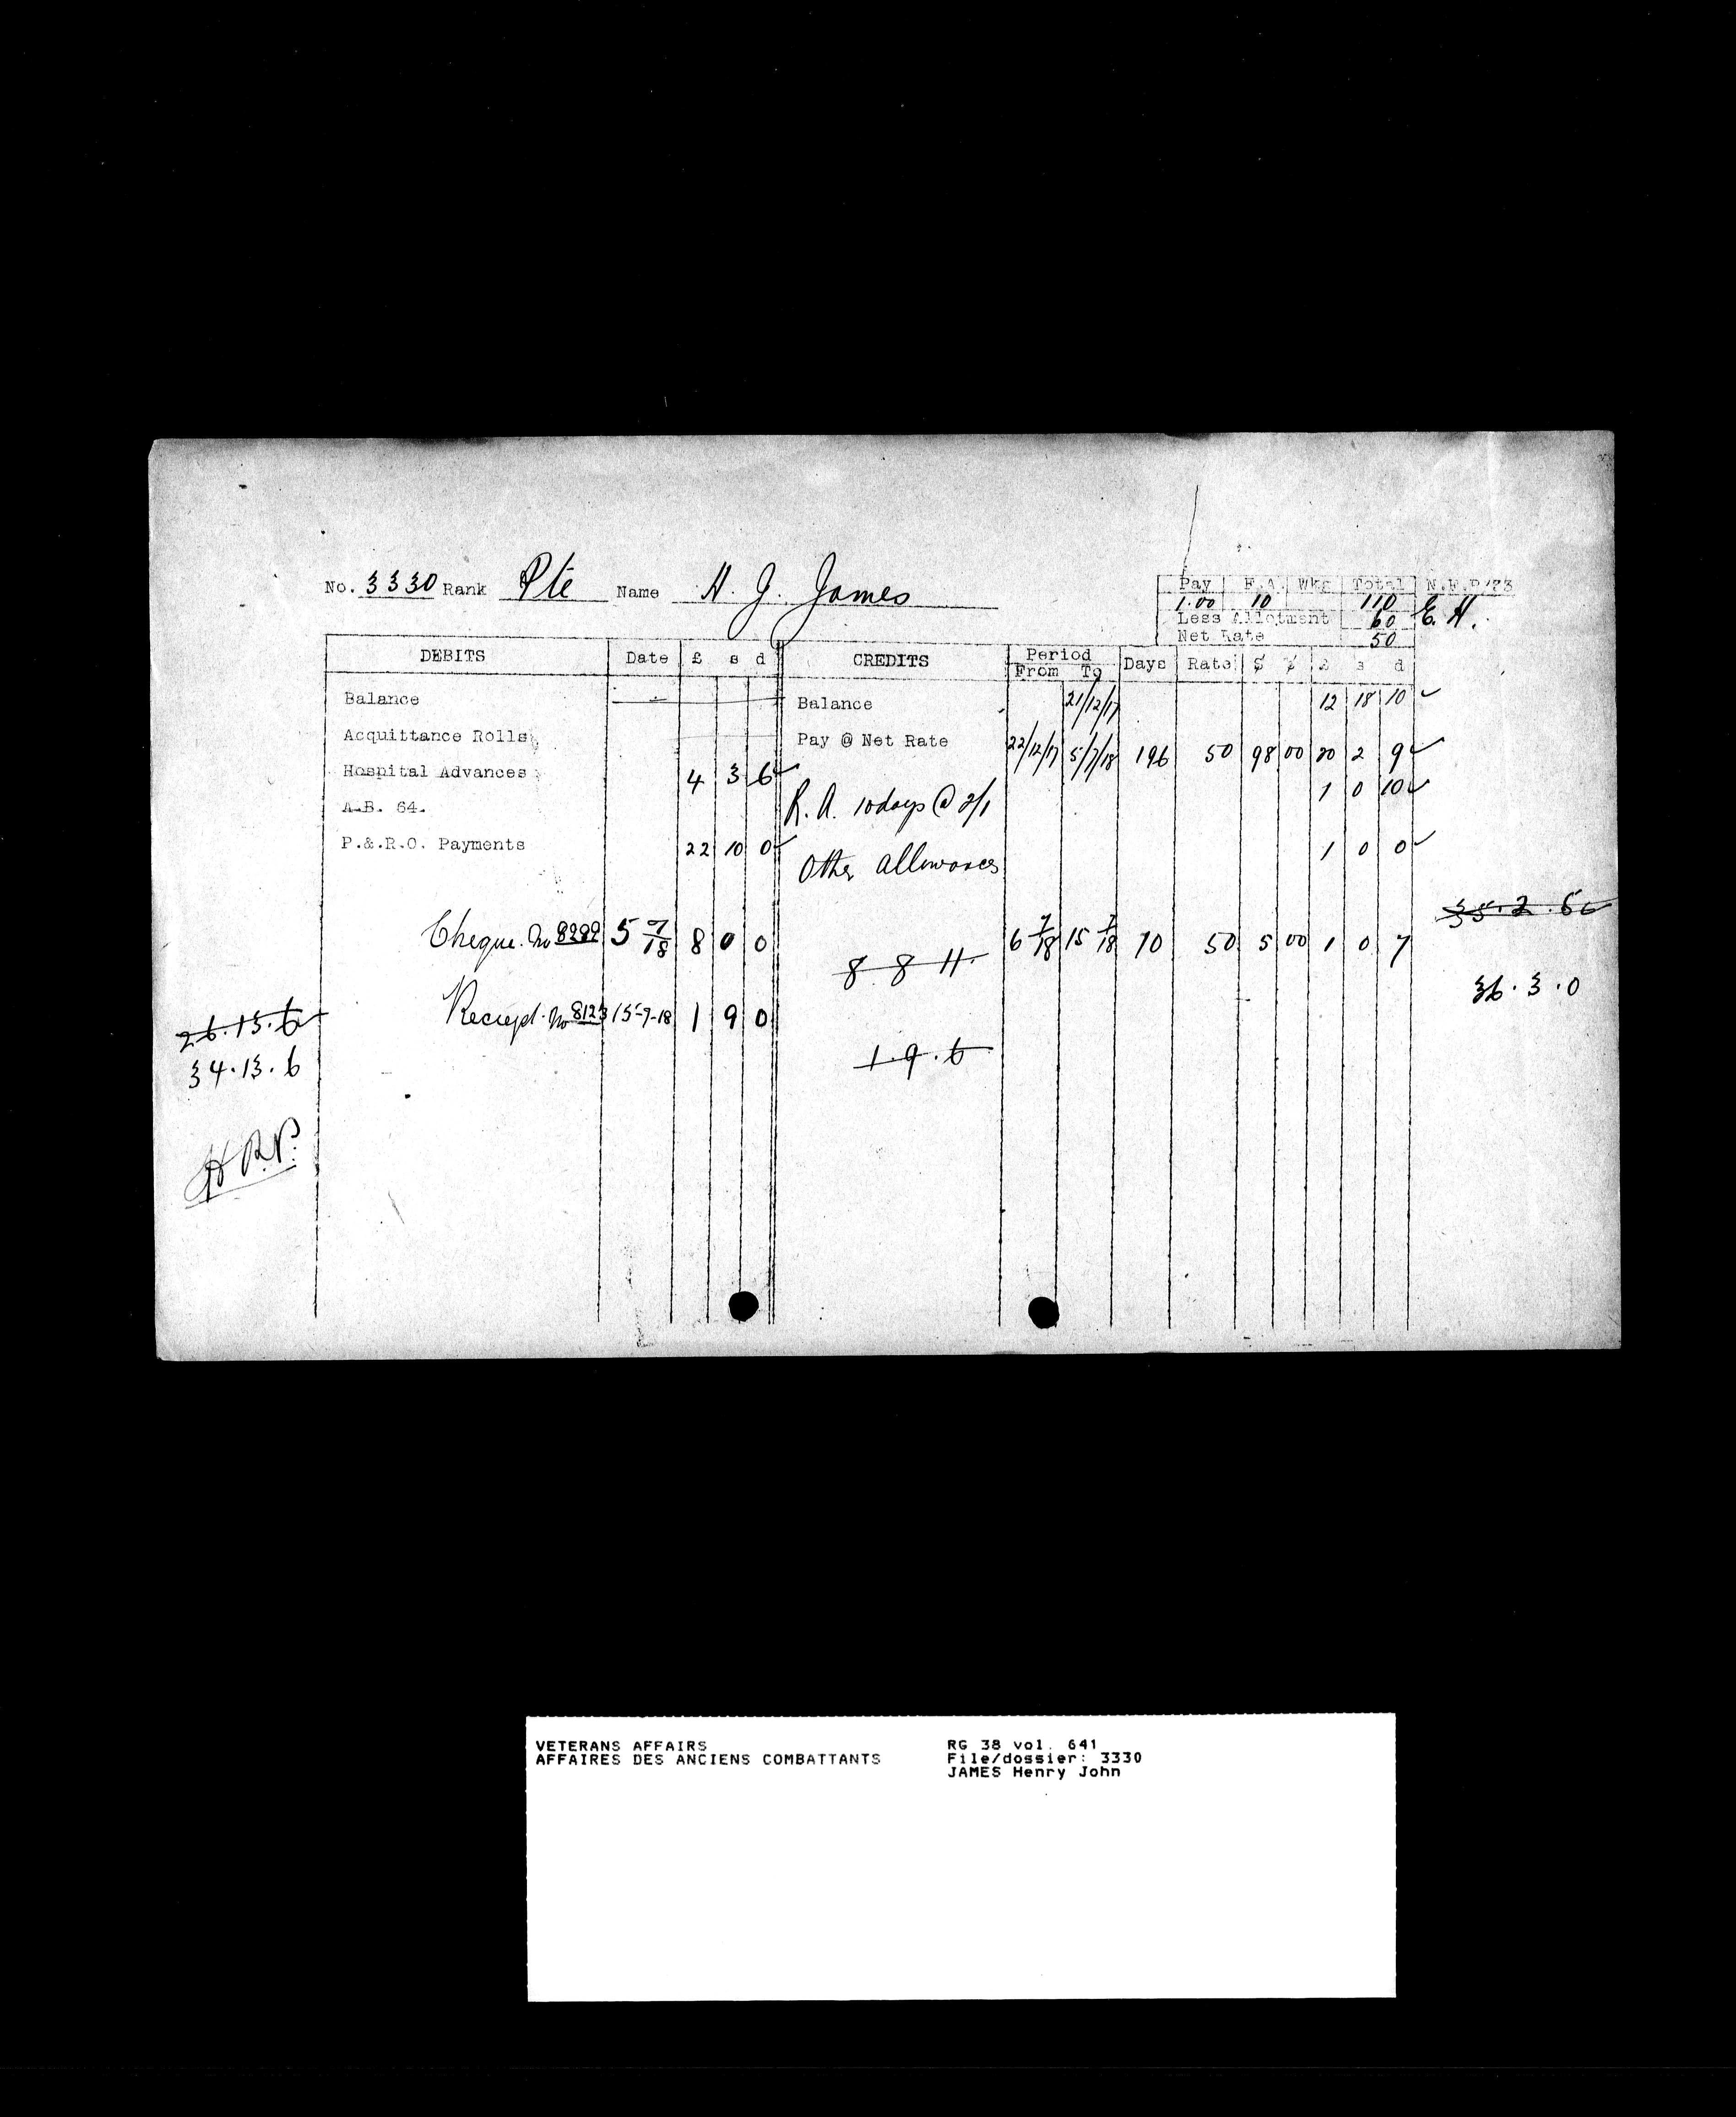 No. 3330 Rank Pte Name H. J. James
Pay F.A. Wkg Total N.F.P/73
1.00 10 110 E. H.
Less Allotment 60
Net Rate 50
DEBITS Date £ s d CREDITS Period From To Days Rate $ ¢ £ s d
Balance Balance 21/12/17 12 18 10
Acquittance Rolls Pay @ Net Rate 22/12/17 5/7/18 196 50 98 00 20 2 9
Hospital Advances 4 3 6 R. A. 10 days @ 2/1 1 0 10
A.B. 64.
P.&.R.O. Payments 22 10 0 Other allowances 1 0 0
35.2.5
Cheque. No 8299 5 7/18 8 0 0 6 7/18 15 7/18 10 50 5 00 1 0 7
8 8 11
36.3.0
26.13.6 Reciept. No 8123 15-7-18 1 9 0
34.13.6 1.9.6
H.R.P.
VETERANS AFFAIRS RG 38 vol. 641
AFFAIRES DES ANCIENS COMBATTANTS File/dossier: 3330
JAMES Henry John